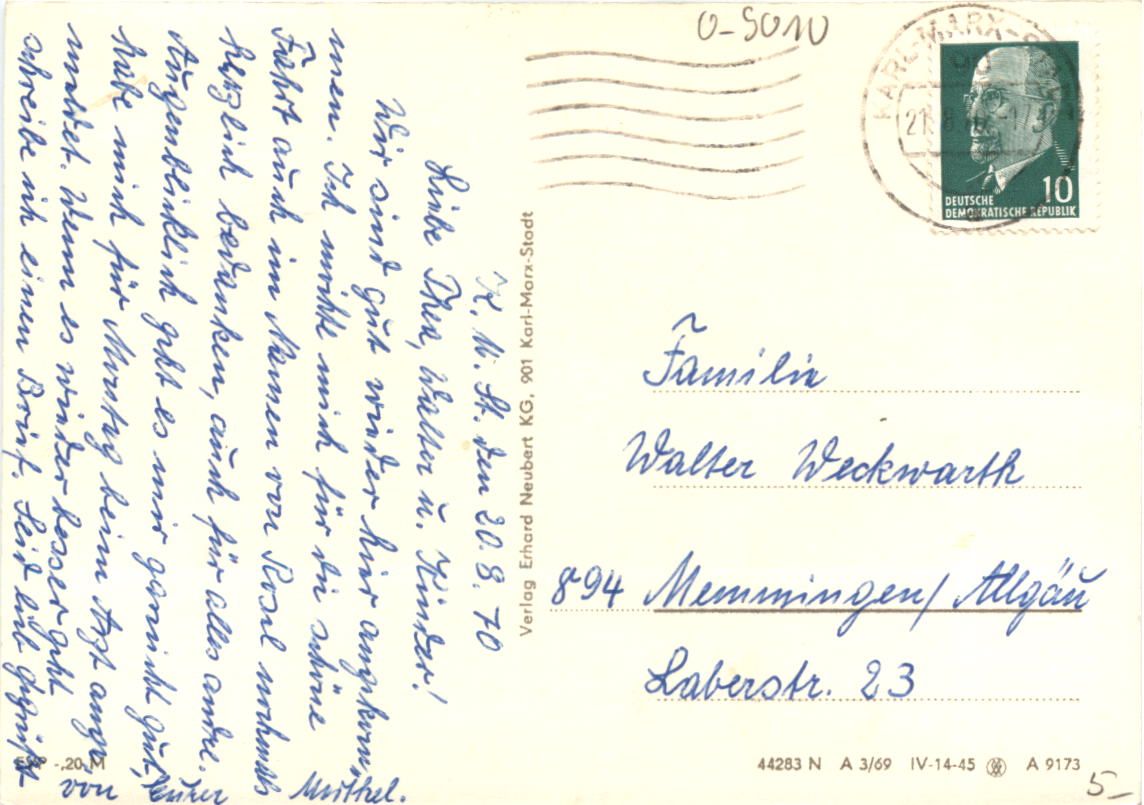 K. M. St. den 20.8.70
Liebe Thea, Walter u. Kinder!
Wir sind gut wieder hier angekom-
men. Ich möchte mich für die schöne
Fahrt auch im Namen von Rosel nochmals
herzlich bedanken, auch für alles andre.
Augenblicklich geht es mir garnicht gut,
habe mich für Montag beim Arzt ange-
meldet. Wenn es wieder besser geht
schreibe ich einen Brief. Seid lieb gegrüßt
von Eurer
Verlag Erhard Neubert KG, 901 Karl-Marx-Stadt
0-9010
KARL-MARX-STADT
DEUTSCHE
DEMOKRATISCHE REPUBLIK
10
Familie
Walter Weckwarth
894 Memmingen/Allgäu
Laberstr. 23
EVP -,20 M
44283 N A 3/69 IV-14-45 A 9173
5-